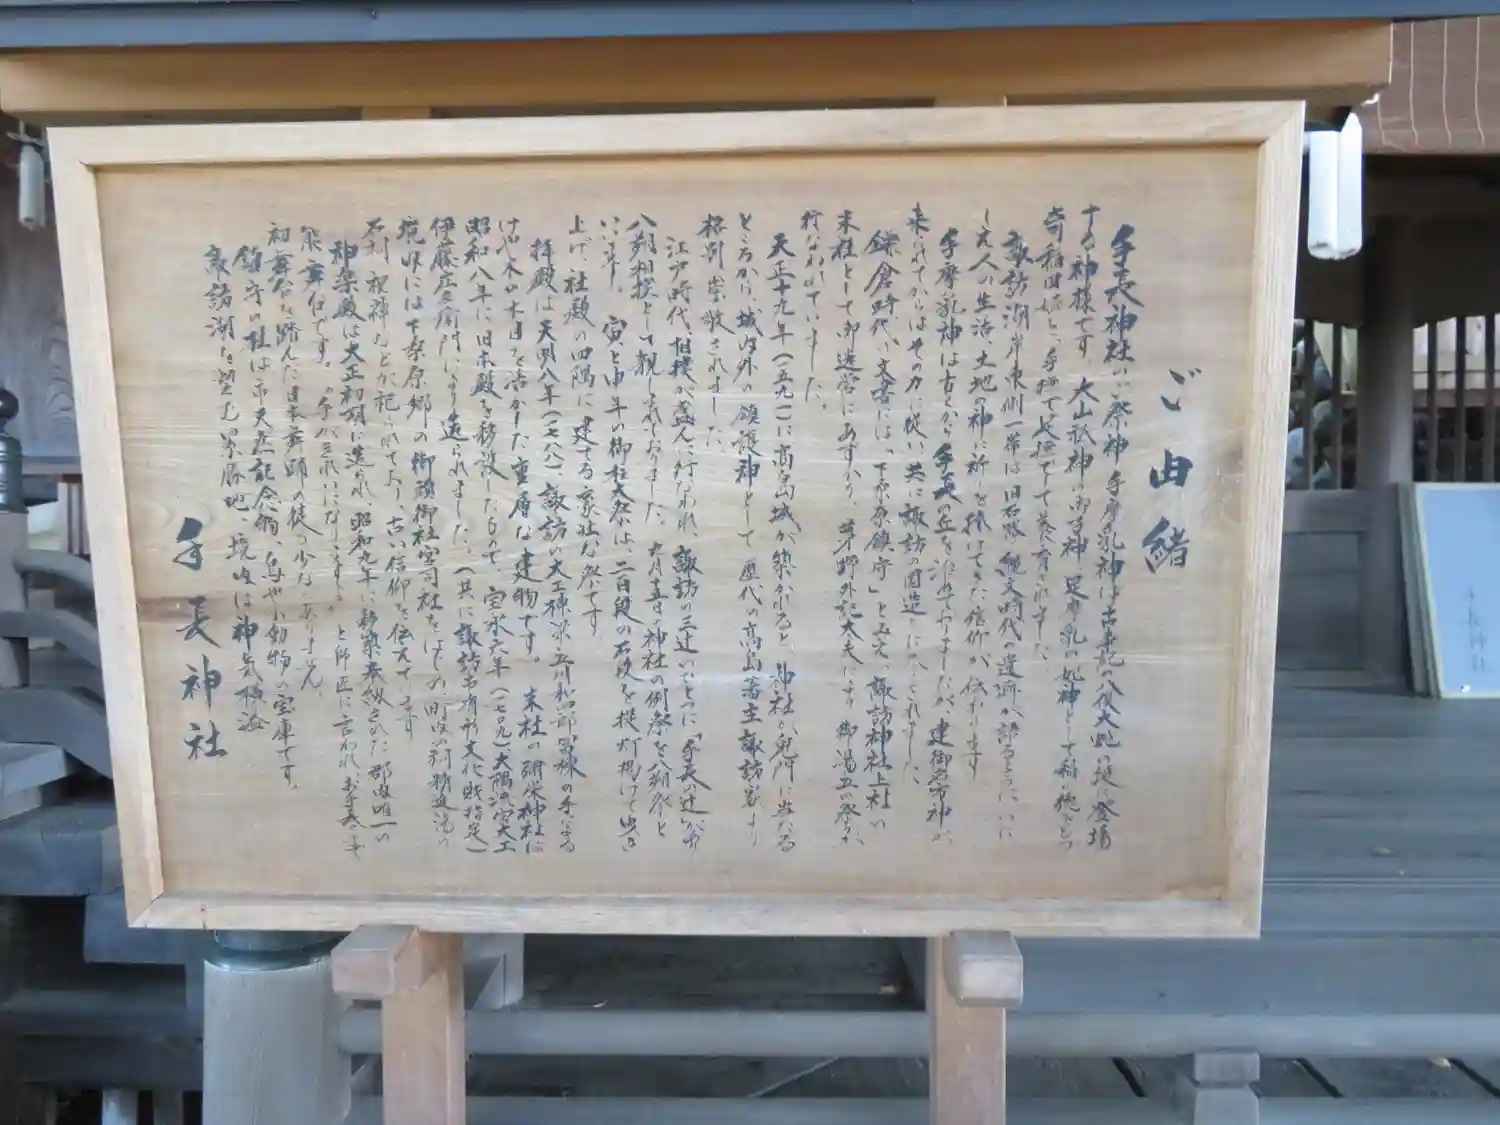 ご由緒
手長神社のご祭神 手摩乳神は古事記の八俣大蛇の段に登場
する神様です。大山祇神の御子神 足摩乳の妃神として稲の穂とどつ
奇稲田姫を、手撫で足撫でして養育されました。
諏訪湖岸東側一帯は旧石器、縄文時代の遺跡が語るように、いに
しえ人の生活、土地の神に祈りを捧げてきた信仰が伝わります
手摩乳神は古くから手長の丘を治めてやましたが、建御名方神が
来られてからはその力に従い、共に諏訪の国造りに入られました。
鎌倉時代、文書には「下桑原鎮守」とみえ、諏訪神社上社の
末社として御造営にあずかり、茅野外記太夫により御湯立の祭が
行なわれていました。
天正十九年(一五九一)に高島城が築かれると、神社が鬼門に当たる
ところから、城内外の鎮護神として 歴代の高島藩主諏訪家より
格別崇敬されました。
江戸時代、相撲が盛んに行なわれ、諏訪の三辻のひとつに「手長の辻」があり
八朔相撲として親しまれておりました。九月十五日の神社の例祭を八朔祭と
いいます。 寅と申年の御柱大祭は、二百段の石段を提灯掲げて曳き
上げ、社殿の四隅に 建てる豪壮な祭です。
拝殿は天明八年(一七八八)諏訪の大工棟梁・立川和四郎富棟の手になる
けやき木の木目を活かした重厚な建物です。 末社の 神社は
昭和八年に旧本殿を移設したもので、宝永六年(一七〇九)大隅流宮大工
伊藤庄左衛門により造られました。(共に諏訪市有形文化財指定)
境内には下桑原郷の御頭御社宮司社をはじめ、町内の 精進湯の
石祠、祝神などが祀られており、古い信仰を伝えています
神楽殿は大正初期に造られ、昭和九年に能楽奉納された郡内唯一の
能舞台です。「手がきれいになります。」と師匠に言われ、お手長さまで
初舞台を踏んだ日本舞踊の徒も少なくありません。
鎮守の杜は市天然記念物、鳥や小動物の宝庫です。
諏訪湖を望む景勝地、境内は神気横溢
手長神社
手長神社